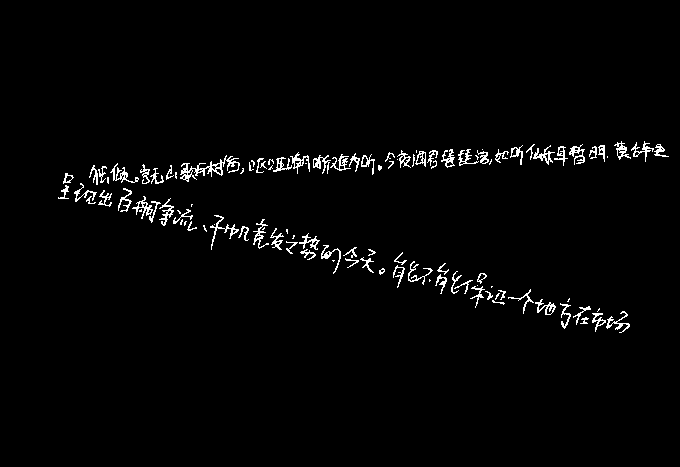 倾。岂无山歌与村笛,呕哑嘲哳难为听。今夜闻君琵琶语,如听仙乐耳暂明。莫辞更
呈现出百舸争流、千帆竞发之势的今天。能不能保证一个地方在市场